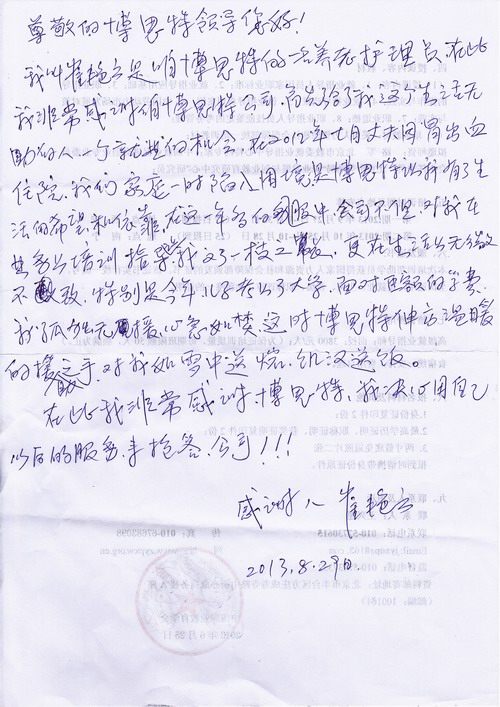 尊敬的博思特领导您好！
我叫崔艳云是咱博思特的一名养老护理员，在此
我非常感谢咱博思特公司，首先给了我这个生活无
助的人一个就业的机会，在2012年七月丈夫因胃出血
住院，我们家庭一时陷入困境是博思特让我有了生
活的希望和依靠，在这一年多的中，公司不但，对我在
业务上培训指学我又了一技之长，更在生活上无微
不致，特别是今年儿子考上了大学，面对巨额的学费
我孤独无援，心急如焚，这时博思特伸出温暖
的援手，对我如雪中送炭，饥汉送饭。
在此我非常感谢，博思特，我决心用自己
以后的服务，来抢答，公司！！！
感谢人 崔艳云
2013.8.29日